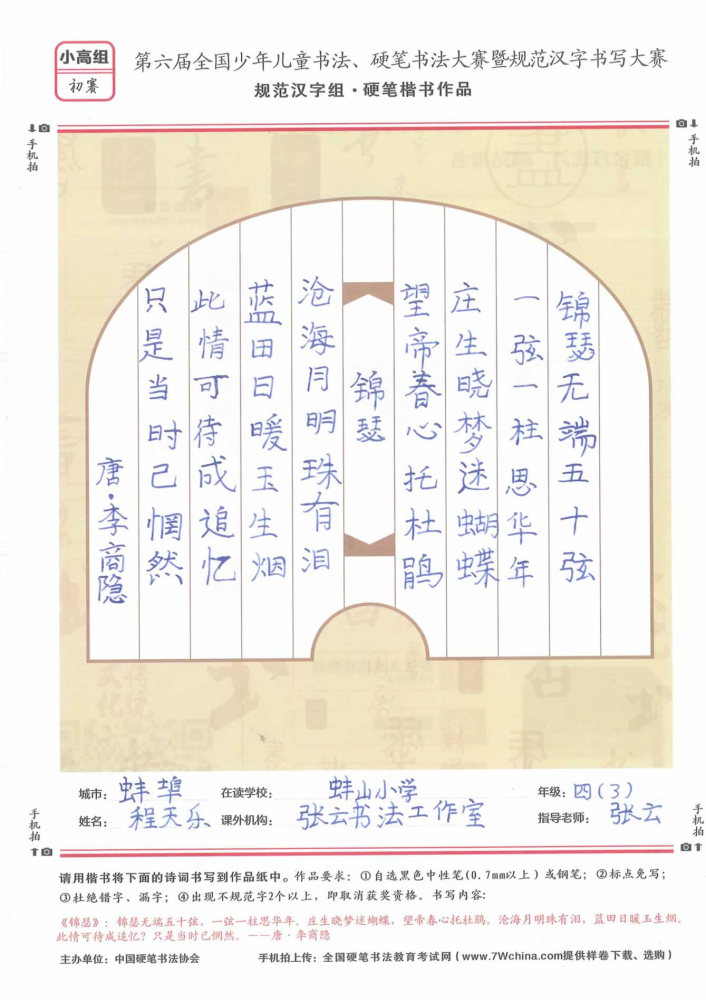 小高组
初赛
第六届全国少年儿童书法、硬笔书法大赛暨规范汉字书写大赛
规范汉字组·硬笔楷书作品
手机拍
手机拍
锦瑟无端五十弦
一弦一柱思华年
庄生晓梦迷蝴蝶
望帝春心托杜鹃
锦瑟
沧海月明珠有泪
蓝田日暖玉生烟
此情可待成追忆
只是当时已惘然
唐·李商隐
城市：蚌埠 在读学校：蚌山小学 年级：四(3)
姓名：程天乐 课外机构：张云书法工作室 指导老师：张云
手机拍
手机拍
请用楷书将下面的诗词书写到作品纸中。作品要求：①自选黑色中性笔(0.7mm以上）或钢笔；②标点免写；
③杜绝错字、漏字；④出现不规范字2个以上，即取消获奖资格。书写内容：
《锦瑟》：锦瑟无端五十弦，一弦一柱思华年。庄生晓梦迷蝴蝶，望帝春心托杜鹃。沧海月明珠有泪，蓝田日暖玉生烟。
此情可待成追忆？只是当时已惘然。——唐·李商隐
主办单位：中国硬笔书法协会 手机拍上传：全国硬笔书法教育考试网（www.7Wchina.com提供样卷下载、选购）